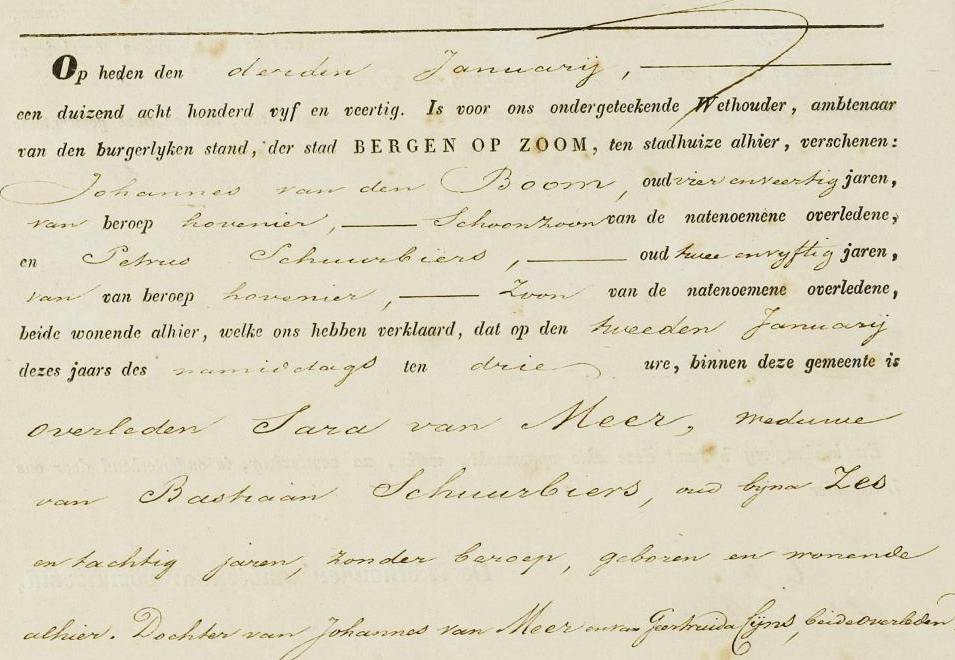 Op heden den derden Januarij,
een duizend acht honderd vyf en veertig. Is voor ons ondergeteekende Wethouder, ambtenaar
van den burgerlyken stand, der stad BERGEN OP ZOOM, ten stadhuize alhier, verschenen:
Johannes van den Boom, oud vier en veertig jaren,
van beroep hovenier, Schoonzoon van de natenoemene overledene,
en Petrus Schuurbiers, oud twee en vyftig jaren,
van van beroep hovenier, Zoon van de natenoemene overledene,
beide wonende alhier, welke ons hebben verklaard, dat op den tweeden Januarij
dezes jaars des namiddags ten drie ure, binnen deze gemeente is
overleden Sara van Meer, weduwe
van Bastiaan Schuurbiers, oud bijna Zes
en tachtig jaren, zonder beroep, geboren en wonende
alhier. Dochter van Johannes van Meer en van Geertruida Lijns, beide overleden.